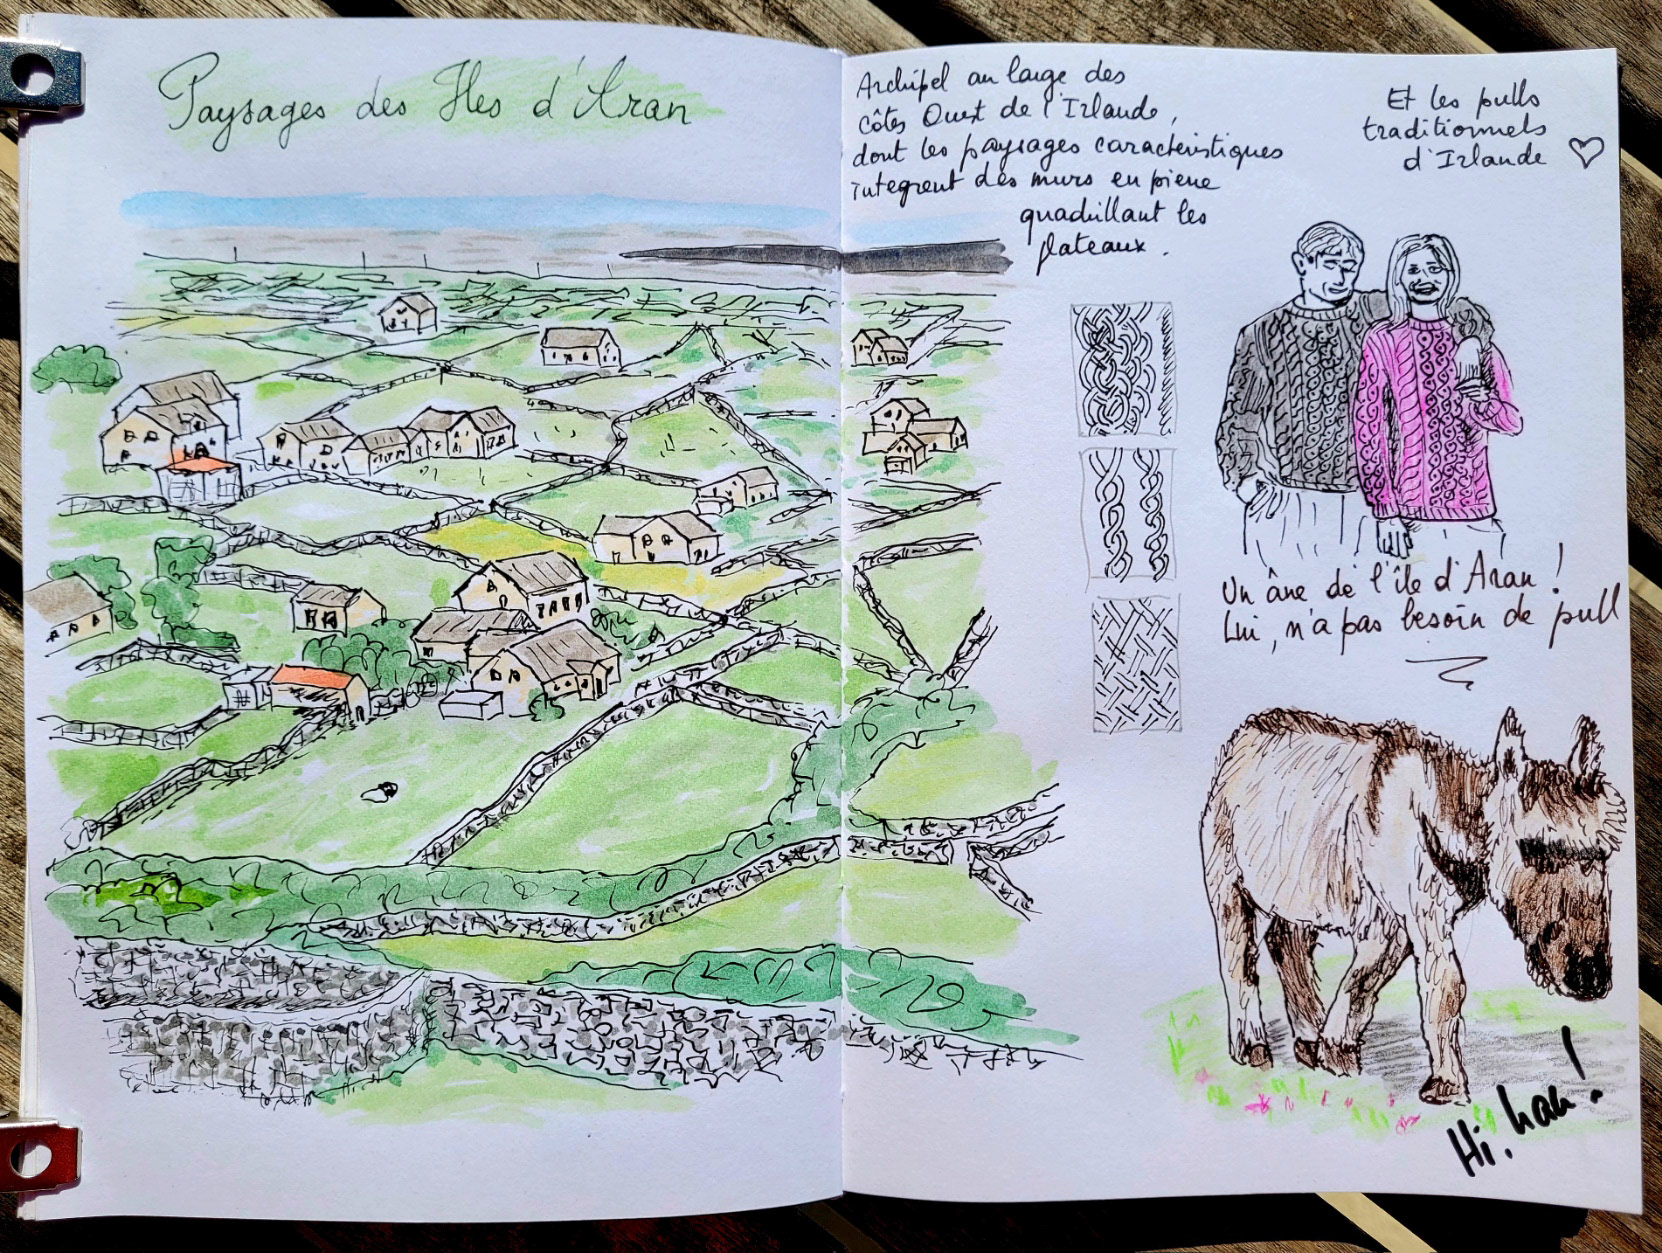 Paysages des Iles d'Aran
Archipel au large des
côtes Ouest de l'Irlande,
dont les paysages caractéristiques
intègrent des murs en pierre
quadrillant les
plateaux.
Et les pulls
traditionnels
d'Irlande ♡
Un âne de l'île d'Aran !
Lui, n'a pas besoin de pull
Hi. han !